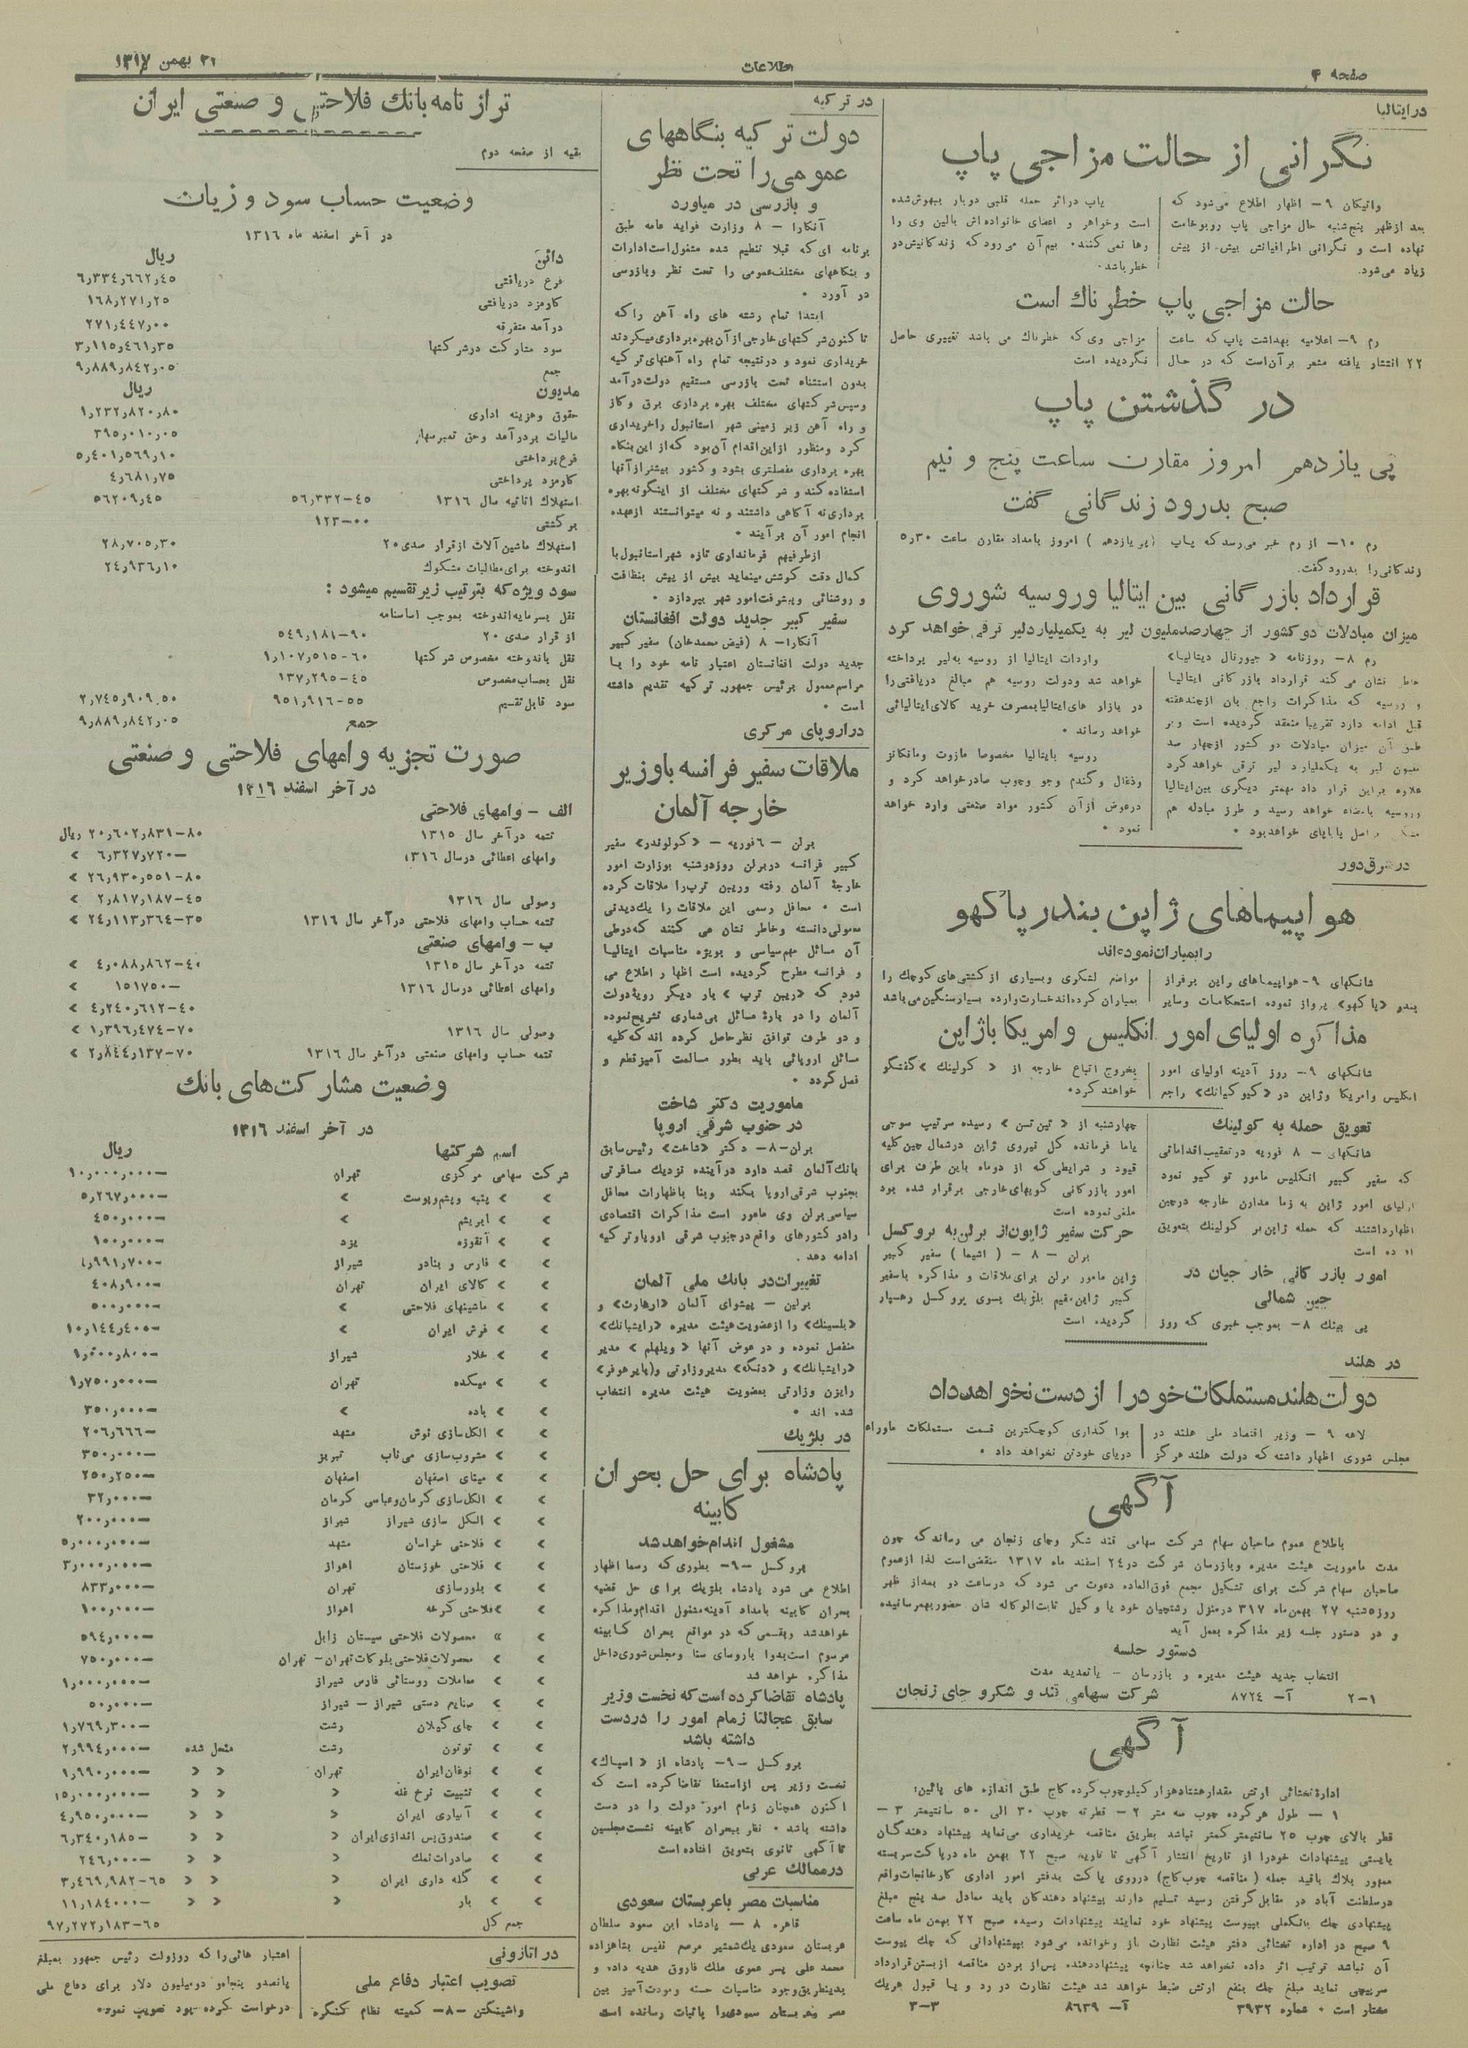 صفحه ۴
اطلاعات
۲۱ بهمن ۱۳۱۷
در ایتالیا
نگرانی از حالت مزاجی پاپ
واتیکان ۹- اظهار اطلاع می‌شود که
بعد از ظهر پنج‌شنبه حال مزاجی پاپ رو بوخامت
نهاده است و نگرانی اطرافیانش بیش از پیش
زیاد می‌شود.
پاپ در اثر حمله قلبی دوبار بیهوش شده
است و خواهر و اعضای خانواده‌اش بالین وی را
رها نمی‌کنند. بیم آن می‌رود که زندگانیش در
خطر باشد.
حالت مزاجی پاپ خطرناك است
رم ۹- اعلامیه بهداشت پاپ که ساعت
۲۲ انتشار یافته مشعر بر آن است که در حال
مزاجی وی که خطرناك می باشد تغییری حاصل
نگردیده است
در گذشتن پاپ
پی یازدهم امروز مقارن ساعت پنج و نیم
صبح بدرود زندگانی گفت
رم ۱۰- از رم خبر می‌رسد که پاپ (پی یازدهم) امروز بامداد مقارن ساعت ۵٫۳۰
زندگانی را بدرود گفت.
قرارداد بازرگانی بین ایتالیا و روسیه شوروی
میزان مبادلات دو کشور از چهارصد ملیون لیر به یکمیلیارد لیر ترقی خواهد کرد
رم ۸- روزنامه «جیورنال دیتالیا»
خاطر نشان می کند قرارداد بازرگانی ایتالیا
و روسیه که مذاکرات راجع بان از چند هفته
قبل ادامه دارد تقریبا منعقد گردیده است و بر
طبق آن میزان مبادلات دو کشور از چهار صد
ملیون لیر به یکملیارد لیر ترقی خواهد کرد
علاوه بر این قرار داد مهمتر دیگری بین ایتالیا
و روسیه بامضاء خواهد رسید و طرز مبادله هم
اصل پایاپای خواهد بود ۰
واردات ایتالیا از روسیه به لیر پرداخته
خواهد شد و دولت روسیه هم مبالغ دریافتی را
در بازار های ایتالیا بمصرف خرید کالای ایتالیائی
خواهد رساند ۰
روسیه بایتالیا مخصوصا مازوت و مانگانز
و ذغال و گندم و جو و چوب صادر خواهد کرد و
در عوض از آن کشور مواد صنعتی وارد خواهد
نمود ۰
در شرق دور
هواپیماهای ژاپن بندر پاکهو
را بمباران نموده‌اند
شانگهای ۹- هواپیماهای ژاپن بر فراز
بندر «پاکهو» پرواز نموده استحکامات و سایر
مواضع لشگری و بسیاری از کشتی‌های کوچك را
بمباران کرده‌اند خسارت وارده بسیار سنگین می‌باشد
مذاکره اولیای امور انگلیس و امریکا با ژاپن
شانگهای ۹- روز آدینه اولیای امور
انگلیس و امریکا و ژاپن در «کیوکیانك» راجع
بخروج اتباع خارجه از «کولینك» گفتگو
خواهند کرد۰
تعویق حمله به کولینك
شانگهای - ۸ فوریه در تعقیب اقداماتی
که سفیر کبیر انگلیس مامور توکیو نمود
اولیای امور ژاپن به زمامداران خارجه در چین
اظهار داشتند که حمله ژاپن بر کولینك بتعویق
افتاده است
امور بازرگانی خارجیان در
چین شمالی
پی پینك ۸- بموجب خبری که روز
چهارشنبه از «تین تسن» رسیده سرتیپ سوجی
یاما فرمانده کل نیروی ژاپن در شمال چین کلیه
قیود و شرایطی که از دو ماه باین طرف برای
امور بازرگانی کویهای خارجی برقرار شده بود
ملغی نموده است
حرکت سفیر ژاپون از برلن به بروکسل
برلن - ۸ - (اشیما) سفیر کبیر
ژاپن مامور برلن برای ملاقات و مذاکره با سفیر
کبیر ژاپن مقیم بلژیك بسوی بروکسل رهسپار
گردیده است
در هلند
دولت هلند مستملکات خود را از دست نخواهد داد
لاهه ۹ - وزیر اقتصاد ملی هلند در
مجلس شوری اظهار داشته که دولت هلند هرگز
بواگذاری کوچکترین قسمت مستملکات ماوراء
دریای خود تن نخواهد داد ۰
آگهی
باطلاع عموم صاحبان سهام شرکت سهامی قند شکر و چای زنجان می رساند که چون
مدت ماموریت هیئت مدیره و بازرسان شرکت در ۲۴ اسفند ماه ۱۳۱۷ منقضی است لذا از عموم
صاحبان سهام شرکت برای تشکیل مجمع فوق‌العاده دعوت می شود که در ساعت دو بعد از ظهر
روز ۵شنبه ۲۷ بهمن ماه ۳۱۷ در منزل رشتچیان خود یا وکیل ثابت‌الوکاله شان حضور بهمرسانیده
و در دستور جلسه زیر مذاکره بعمل آید
دستور جلسه
انتخاب جدید هیئت مدیره و بازرسان - یا تمدید مدت
۱-۲ آ- ۸۷۲۴ شرکت سهامی قند و شکر و چای زنجان
آگهی
ادارهٔ نختائی ارتش مقدار هشتاد هزار کیلو چوب گرده کاج طبق اندازه های پائین:
۱ - طول هر گرده چوب سه متر ۲ - قطر ته چوب ۳۰ الی ۵۰ سانتیمتر ۳ -
قطر بالای چوب ۲۵ سانتیمتر کمتر نباشد بطریق مناقصه خریداری می‌نماید پیشنهاد دهندگان
بایستی پیشنهادات خود را از تاریخ انتشار آگهی تا تاریخ صبح ۲۲ بهمن ماه در پاکت سربسته
ممهور بلاك باقید جمله (مناقصه چوب کاج) در روی پاکت بدفتر امور اداری کارخانجات واقع
در سلطنت آباد در مقابل گرفتن رسید تسلیم دارند پیشنهاد دهندگان باید معادل صد پنج مبلغ
پیشنهادی چك بانکملی بپیوست پیشنهاد خود نمایند پیشنهادات رسیده صبح ۲۲ بهمن ماه ساعت
۹ صبح در اداره نختائی دفتر هیئت نظارت باز و خوانده می‌شود بپیشنهاداتی که چك پیوست
آن نباشد ترتیب اثر داده نخواهد شد چنانچه پیشنهاد دهنده پس از بردن مناقصه از بستن قرارداد
سرپیچی نماید مبلغ چك بنفع ارتش ضبط خواهد شد هیئت نظارت در رد و یا قبول هریك
مختار است ۰ شماره ۳۹۳۲ آ- ۸۶۳۹ ۳-۳
در ترکیه
دولت ترکیه بنگاههای
عمومی را تحت نظر
و بازرسی در میاورد
آنکارا - ۸ وزارت فواید عامه طبق
برنامه ای که قبلا تنظیم شده مشغول است ادارات
و بنگاههای مختلف عمومی را تحت نظر و بازرسی
در آورد ۰
ابتدا تمام رشته های راه آهن را که
تاکنون شرکتهای خارجی از آن بهره برداری میکردند
خریداری نمود و در نتیجه تمام راه آهنهای ترکیه
بدون استثناء تحت بازرسی مستقیم دولت در آمد
و سپس شرکتهای مختلف بهره برداری برق و گاز
و راه آهن زیر زمینی شهر استانبول را خریداری
کرد و منظور از این اقدام آن بود که از این بنگاه
بهره برداری مفصلتری بشود و کشور بیشتر از آنها
استفاده کند و شرکتهای مختلف از اینگونه بهره
برداری نه آگاهی داشتند و نه میتوانستند از عهده
انجام امور آن برآیند ۰
از طرفیهم فرمانداری تازه شهر استانبول با
کمال دقت کوشش مینماید بیش از پیش بنظافت
و روشنائی و پیشرفت امور شهر بپردازد ۰
سفیر کبیر جدید دولت افغانستان
آنکارا- ۸ (فیض محمدخان) سفیر کبیر
جدید دولت افغانستان اعتبار نامه خود را با
مراسم معمول برئیس جمهور ترکیه تقدیم داشته
است ۰
در اروپای مرکزی
ملاقات سفیر فرانسه با وزیر
خارجه آلمان
برلن - ۶ فوریه - «کولوندر» سفیر
کبیر فرانسه در برلن روز دوشنبه بوزارت امور
خارجهٔ آلمان رفته و ریبن ترپ را ملاقات کرده
است ۰ محافل رسمی این ملاقات را یك دیدنی
معمولی دانسته و خاطر نشان می کنند که در طی
آن مسائل مهم سیاسی و بویژه مناسبات ایتالیا
و فرانسه مطرح گردیده است اظهار اطلاع می
شود که «ریبن ترپ» بار دیگر رویهٔ دولت
آلمان را در بارهٔ مسائل بی‌شماری تشریح نموده
و دو طرف توافق نظر حاصل کرده اند که کلیه
مسائل اروپائی باید بطور مسالمت آمیز قطع و
فصل گردد ۰
ماموریت دکتر شاخت
در جنوب شرقی اروپا
برلن -۸- دکتر «شاخت» رئیس سابق
بانك آلمان قصد دارد در آینده نزدیك مسافرتی
بجنوب شرقی اروپا بکند و بنا باظهارات محافل
سیاسی برلن وی مامور است مذاکرات اقتصادی
را در کشورهای واقع در جنوب شرقی اروپا و ترکیه
ادامه دهد.
تغییرات در بانك ملی آلمان
برلین - پیشوای آلمان «ارهارت» و
«بلسینك» را از عضویت هیئت مدیره «رایشبانك»
منفصل نموده و در عوض آنها «ویلهلم» مدیر
«رایشبانك» و «دنگه» مدیر وزارتی و (بایرهوفر)
رایزن وزارتی بعضویت هیئت مدیره انتخاب
شده اند ۰
در بلژیك
پادشاه برای حل بحران
کابینه
مشغول اقدام خواهد شد
بروکسل -۹- بطوری که رسما اظهار
اطلاع می شود پادشاه بلژیك برای حل قضیه
بحران کابینه بامداد آدینه مشغول اقدام و مذاکره
خواهد شد و بقسمی که در مواقع بحران کابینه
مرسوم است بدوا با روسای سنا و مجلس شوری داخل
مذاکره خواهد شد
پادشاه تقاضا کرده است که نخست وزیر
سابق عجالتا زمام امور را در دست
داشته باشد
بروکسل -۹- پادشاه از «اسپاك»
نخست وزیر پس از استعفا تقاضا کرده است که
اکنون همچنان زمام امور دولت را در دست
داشته باشد ۰ نظر ببحران کابینه نشست مجلسین
تا آگهی ثانوی بتعویق افتاده است
در ممالك عربی
مناسبات مصر با عربستان سعودی
قاهره ۸ - پادشاه ابن سعود سلطان
عربستان سعودی یك شمشیر مرصع نفیس بشاهزاده
محمد علی پسر عموی ملك فاروق هدیه داده و
بدینطریق وجود مناسبات حسنه و مودت آمیز بین
مصر و عربستان سعودی را باثبات رسانده است
تراز نامه بانك فلاحتی و صنعتی ایران
بقیه از صفحه دوم
وضعیت حساب سود و زیان
در آخر اسفند ماه ۱۳۱۶
دائن ریال
فرع دریافتی ۶٫۳۳۴٫۶۶۲٫۴۵
کارمزد دریافتی ۱۶۸٫۲۷۱٫۲۵
درآمد متفرقه ۲۷۱٫۴۴۷٫۰۰
سود مشارکت در شرکتها ۳٫۱۱۵٫۴۶۱٫۳۵
جمع ۹٫۸۸۹٫۸۴۲٫۰۵
مدیون ریال
حقوق و هزینه اداری ۱٫۲۳۲٫۸۲۰٫۸۰
مالیات بر درآمد و حق تمبر سهام ۳۹۵٫۰۱۰٫۰۵
فرع پرداختی ۵٫۴۰۱٫۵۶۹٫۱۰
کارمزد پرداختی ۴٫۶۸۱٫۷۵
استهلاك اثاثیه سال ۱۳۱۶ ۵۶٫۳۳۲-۴۵ ۵۶۲۰۹٫۴۵
برگشتی ۱۲۳-۰۰
استهلاك ماشین آلات از قرار صدی ۲۰ ۲۸٫۷۰۵٫۳۰
اندوخته برای مطالبات مشکوك ۲۴٫۹۳۶٫۱۰
سود ویژه که بترتیب زیر تقسیم میشود:
نقل بسرمایه اندوخته بموجب اساسنامه
از قرار صدی ۲۰ ۵۴۹٫۱۸۱-۹۰
نقل باندوخته مخصوص شرکتها ۱٫۱۰۷٫۵۱۵-۶۰
نقل بحساب مخصوص ۱۳۷٫۲۹۵-۴۵
سود قابل تقسیم ۹۵۱٫۹۱۶-۵۵ ۲٫۷۴۵٫۹۰۹٫۵۰
جمع ۹٫۸۸۹٫۸۴۲٫۰۵
صورت تجزیه وامهای فلاحتی و صنعتی
در آخر اسفند ۱۳۱۶
الف - وامهای فلاحتی
تتمه در آخر سال ۱۳۱۵ ۲۰٫۶۰۲٫۸۳۱-۸۰ ریال
وامهای اعطائی در سال ۱۳۱۶ ۶٫۳۲۷٫۷۲۰- »
۲۶٫۹۳۰٫۵۵۱-۸۰ »
وصولی سال ۱۳۱۶ ۲٫۸۱۷٫۱۸۷-۴۵ »
تتمه حساب وامهای فلاحتی در آخر سال ۱۳۱۶ ۲۴٫۱۱۳٫۳۶۴-۳۵ »
ب - وامهای صنعتی
تتمه در آخر سال ۱۳۱۵ ۴٫۰۸۸٫۸۶۲-۴۰ »
وامهای اعطائی در سال ۱۳۱۶ ۱۵۱۷۵۰- »
۴٫۲۴۰٫۶۱۲-۴۰ »
وصولی سال ۱۳۱۶ ۱٫۳۹۶٫۴۷۴-۷۰ »
تتمه حساب وامهای صنعتی در آخر سال ۱۳۱۶ ۲٫۸۴۴٫۱۳۷-۷۰ »
وضعیت مشارکت‌های بانك
در آخر اسفند ۱۳۱۶
اسم شرکتها ریال
شرکت سهامی مرکزی تهران ۱۰٫۰۰۰٫۰۰۰-
» » پنبه و پشم و پوست » ۵٫۲۶۷٫۰۰۰-
» » ابریشم » ۴۵۰٫۰۰۰-
» » آنقوزه یزد ۱۰۰٫۰۰۰-
» » فارس و بنادر شیراز ۱٫۹۹۱٫۷۰۰-
» » کالای ایران تهران ۴۰۸٫۹۰۰-
» » ماشینهای فلاحتی » ۵۰۰٫۰۰۰-
» » فرش ایران » ۱۰٫۱۴۴٫۴۰۰-
» » خلار شیراز ۹٫۰۰۰٫۸۰۰-
» » میکده تهران ۱٫۷۵۰٫۰۰۰-
» » باده » ۳۵۰٫۰۰۰-
» » الکل سازی نوش مشهد ۲۰۶٫۶۶۶-
» » مشروب سازی می ناب تبریز ۳۵۰٫۰۰۰-
» » مینای اصفهان اصفهان ۲۵۰٫۲۵۰-
» » الکل سازی کرمان و عباسی کرمان ۳۲٫۰۰۰-
» » الکل سازی شیراز شیراز ۲۰۰٫۰۰۰-
» » فلاحتی خراسان مشهد ۵٫۰۰۰٫۰۰۰-
» » فلاحتی خوزستان اهواز ۳٫۰۰۰٫۰۰۰-
» » بلورسازی تهران ۸۳۳٫۰۰۰-
» » فلاحتی کرخه اهواز ۱۰۰٫۰۰۰-
» » محصولات فلاحتی سیستان زابل ۵۹۴٫۰۰۰-
» » محصولات فلاحتی بلوکات تهران - تهران ۷۵۰٫۰۰۰-
» » معاملات روستائی فارس شیراز ۱٫۰۰۰٫۰۰۰-
» » صنایع دستی شیراز - شیراز ۵۰٫۰۰۰-
» » چای گیلان رشت ۱٫۷۶۹٫۳۰۰-
» » توتون رشت منحل شده ۲٫۹۹۴٫۰۰۰-
» » نوغان ایران تهران » » ۱٫۹۹۰٫۰۰۰-
» » تثبیت نرخ غله » » » ۱۵٫۰۰۰٫۰۰۰-
» » آبیاری ایران » » » ۴٫۹۵۰٫۰۰۰-
» » صندوق پس اندازی ایران » » » ۶٫۳۴۰٫۱۸۵-
» » صادرات نمك » » » ۲۴۶٫۰۰۰-
» » گله داری ایران » » » ۳٫۴۶۹٫۹۸۲-۶۵
» » بار » » » ۱۱٫۱۸۴۰۰۰-
جمع کل ۹۷٫۲۷۲٫۱۸۳-۶۵
در اتازونی
تصویب اعتبار دفاع ملی
واشینگتن -۸- کمیته نظام کنگره
اعتبار هائی را که روزولت رئیس جمهور بمبلغ
پانصد و پنجاه و دو میلیون دلار برای دفاع ملی
درخواست کرده بود تصویب نمود۰